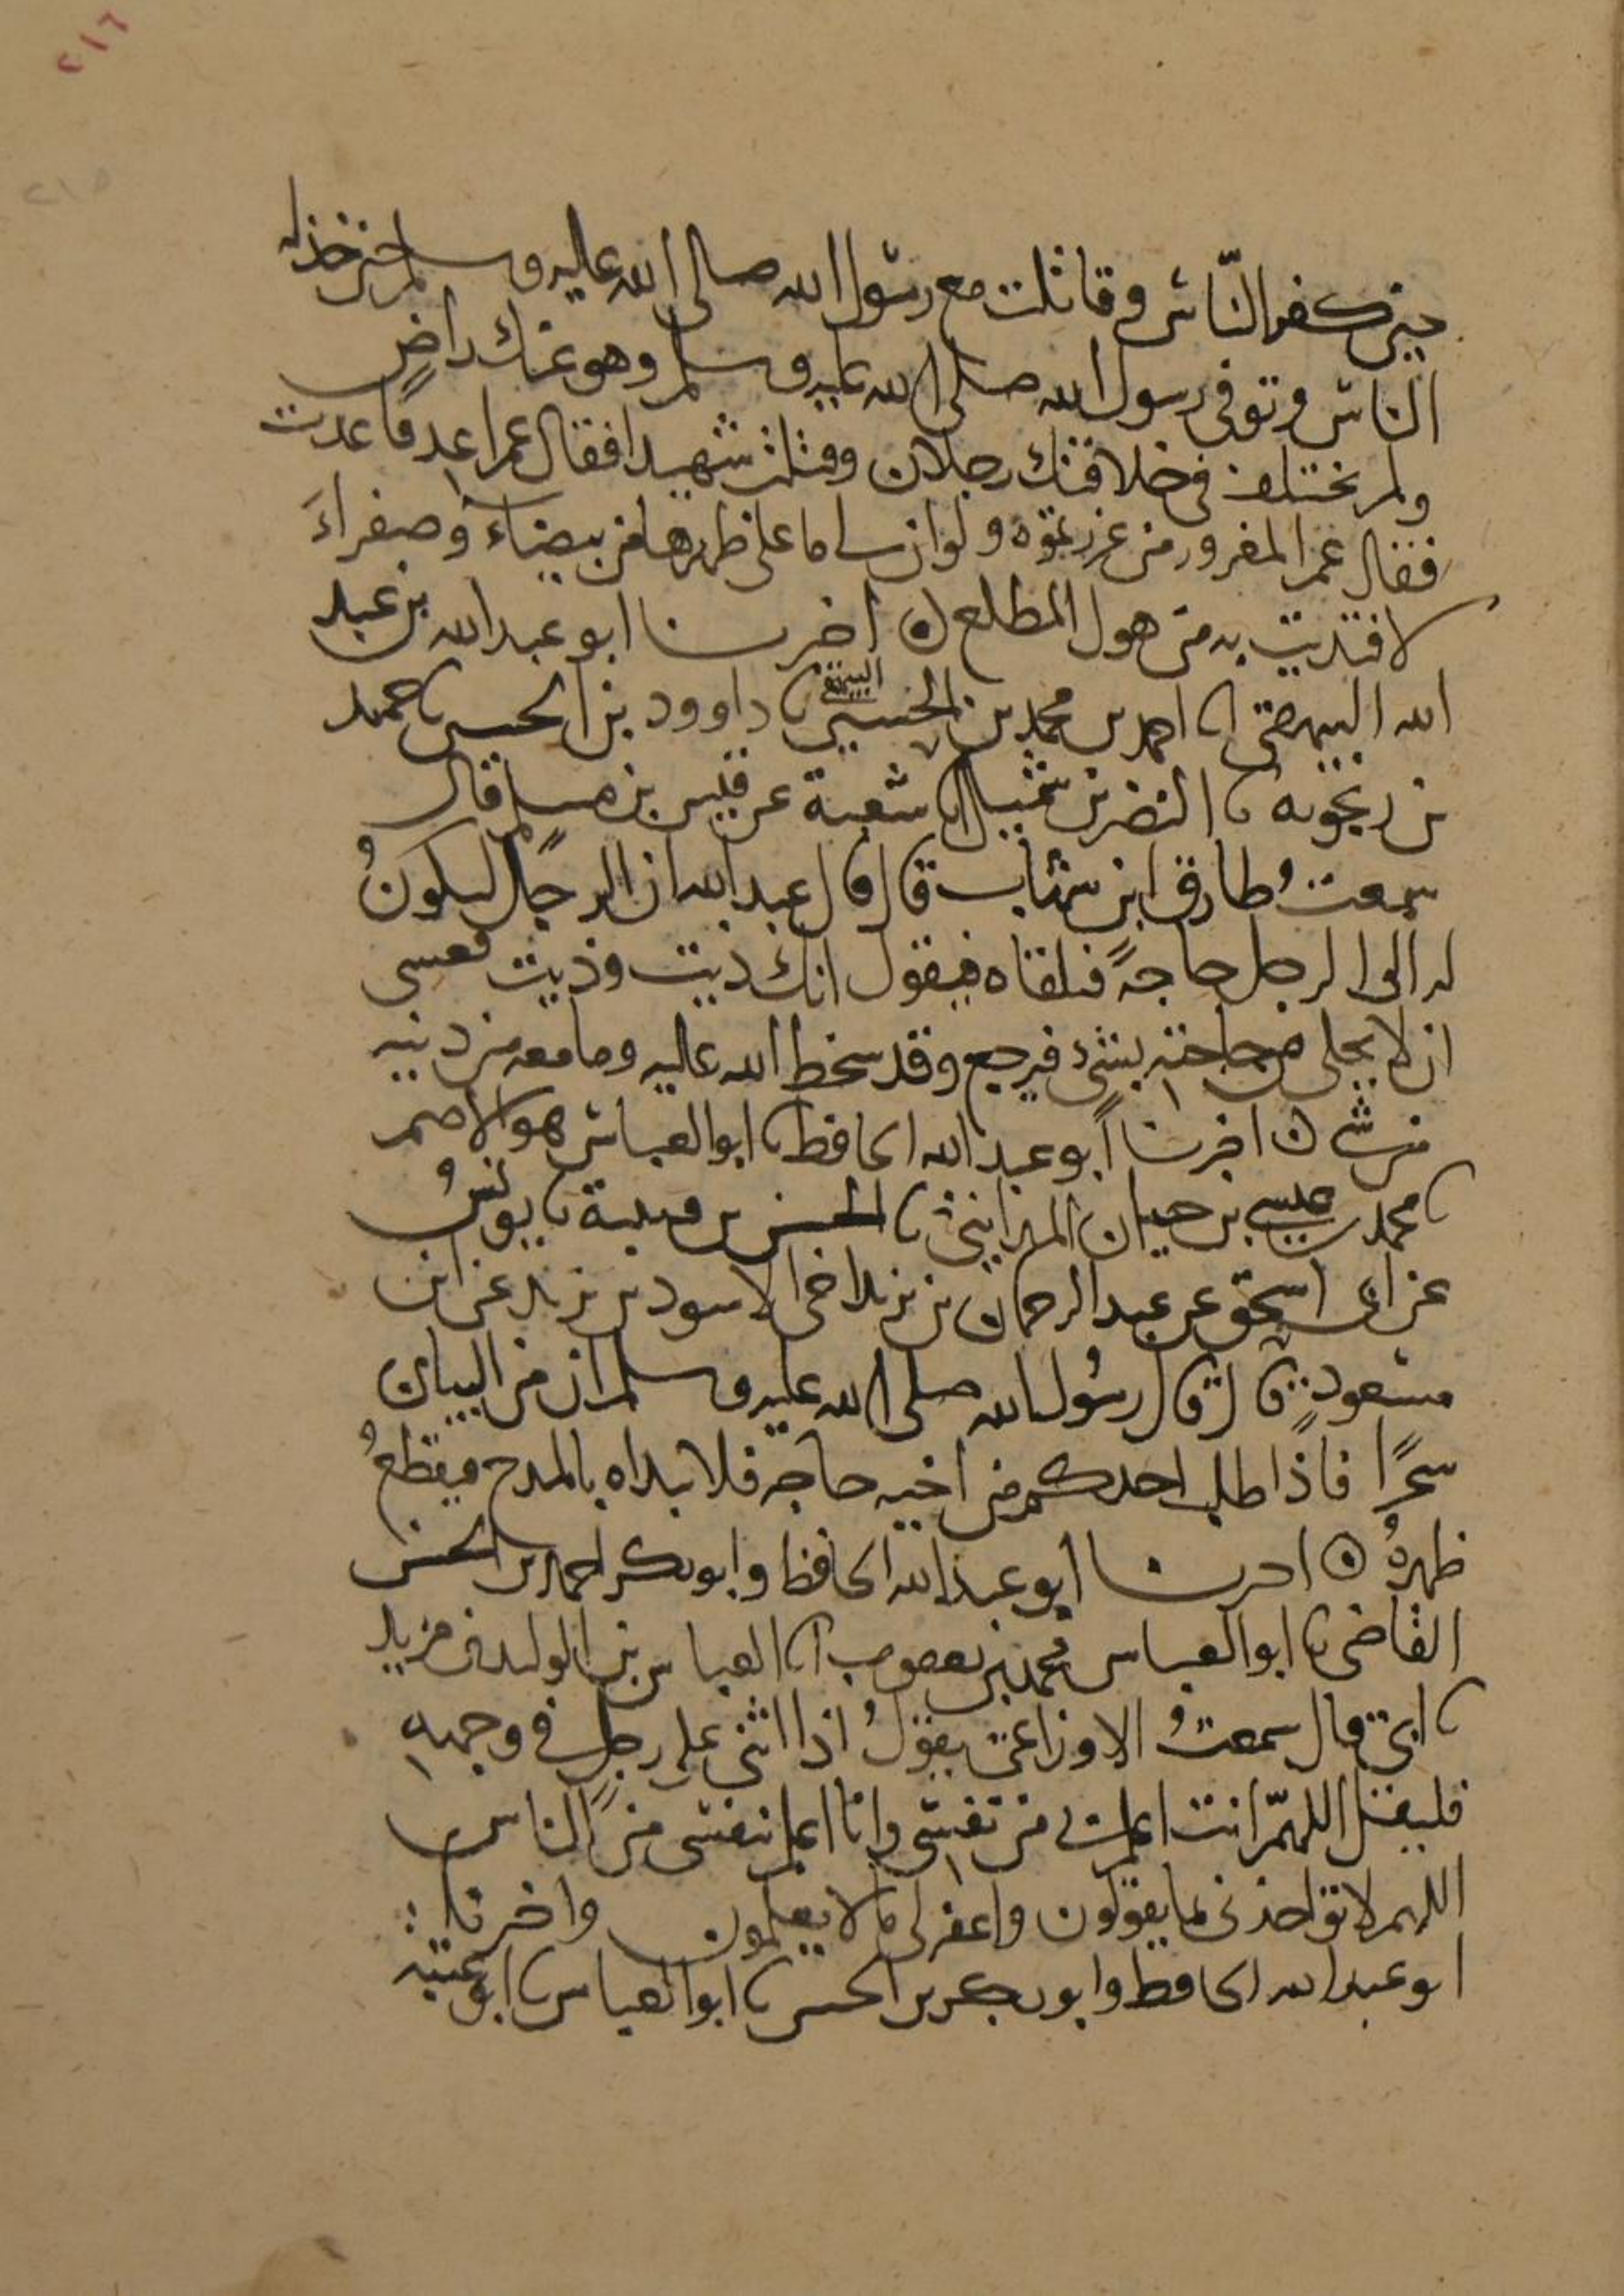 ٢١٦
٢١٥
حين كفر الناس وقاتلت مع رسول الله صلى الله عليه وسلم حين خذله
الناس وتوفي رسول الله صلى الله عليه وسلم وهو عنك راضٍ
ولم يختلف في خلافتك رجلان وقتلت شهيدا فقال عمر اعد فاعدت
فقال عمر المغرور من غررتموه ولو ان لي ما على ظهرها من بيضاء وصفراءَ
لافتديت به من هول المطلع ه اخبرنا ابو عبد الله بن عبد
الله البيهقي انا احمد بن محمد بن الحسين البيهقي نا داوود بن الحسين نا حميد
بن زنجويه نا النضر بن شميل انا شعبة عن قيس بن مسلم قال
سمعتُ طارق ابن شهاب قال قال عبد الله ان الرجل ليكونُ
له الى الرجل حاجةً فيلقاه فيقول انك ذيت وذيت فعسى
ان لا يحلى من حاجته بشئ فيرجع وقد سخط الله عليه وما معه من دينه
من شي ه اخبرنا ابو عبد الله الحافظ نا ابو العباس هو الاصم
نا محمد بن عيسى بن حيان المدايني نا الحسن بن قتيبة نا يونسُ
عن ابي اسحق عن عبد الرحمان بن يزيد اخي الاسود بن يزيد عن ابن
مسعود قال قال رسُول الله صلى الله عليه وسلم ان من البيان
سحرًا فاذا طلب احدكم من اخيه حاجه فلا يبداه بالمدح فيقطعُ
ظهرهُ ه اخبرنا ابو عبد الله الحافظ وابو بكر احمد بن الحسن
القاضي نا ابو العباس محمد بن يعقوب انا العباس بن الوليد بن مزيد
نا ابي قال سمعتُ الاوزاعي يقولُ اذا اثنى على رجل في وجهه
فليقل اللهمّ انت اعلم بي من نفسي وانا اعلم بنفسي من الناس
اللهم لا تواخذني بما يقولون واغفر لي ما لا يعلمون واخبرنا
ابو عبد الله الحافظ وابو بكر بن الحسن نا ابو العباس نا ابو عتبة